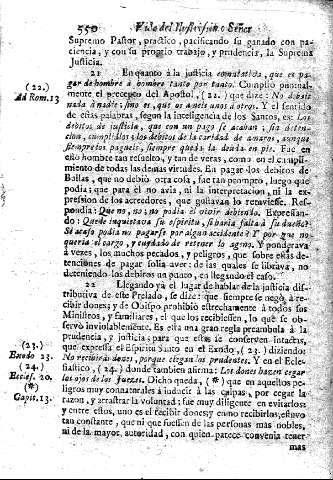 550 Vida del Ilustrissimo Señor
Supremo Pastor, practico, pacificando su ganado con pa-
ciencia, y con su proprio trabajo, y prudencia, la Suprema
Justicia.
21 En quanto à la justicia comutativa, que es pa-
gar de hombre à hombre tanto por tanto. Cumpliò puntual-
(22.)
mente el precepto del Apostol, (22.) que dize: No debais
Ad Rom. 13
nada à nadie; sino es, que os ameis unos à otros. Y el sentido
de estas palabras, segun la inteligencia de los Santos, es: Los
debitos de justicia, que con un pago se acaban; sin deten-
cion, cumplidlos: los debitos de caridad de amaros, aunque
siempre los pagueis, siempre queda la deuda en pie. Fue en
esto hombre tan resuelto, y tan de veras, como en el cumpli-
miento de todas las demas virtudes. En pagar los debitos de
Bullas, que no debiò otra cosa, fue tan prompto, luego que
podia; que para èl no avia, ni la interpretacion, ni la ex-
pression de los acreedores, que gustavan lo retuviesse. Res-
pondia: Que no, no; no podia èl vivir debiendo. Expressan-
do: Quede inquietava su espiritu, si havia falta à su dueño?
Si acaso podia no pagarse por algun accidente? Y por que no
queria el cargo, y cuydado de retener lo ageno. Y ponderava
à vezes, los muchos pecados, y peligros, que sobre estas de-
tenciones de pagar solia aver: de las quales se librava, no
deteniendo los debitos un punto, en llegando el caso.
22 Llegando yà el lugar de hablar de la justicia dis-
tributiva de este Prelado, se dize: que siempre se negò, à re-
cibir dones; y de Obispo prohibiò estrechamente à todos sus
Ministros, y familiares, el que los recibiessen, lo que se ob-
servò inviolablemente. Es esta una gran regla preambula à la
prudencia, y justicia; para que estas se conserven intactas,
(23.)
que expressa el Espiritu Santo en el Exodo, (23.) diziendo:
Exodo 23.
No recibiràs dones, porque ciegan los prudentes. Y en el Ecle-
(24.)
siastico, (24.) donde tambien afirma: Los dones hazen cegar
Eccles. 20.
los ojos de los Juezes. Dicho queda, (*) que en aquestos pe-
(*)
ligros muy connaturales à inducir à las culpas, por cegar la
Capit. 13.
razon, y arrastrar la voluntad: fue muy diligente en evitarlos:
y entre estos, uno es el recibir dones; y como recibirlos, estuvo
tan constante, que ni que fuessen de las personas mas nobles,
ni de la mayor autoridad, con quien parece convenia tener
mas